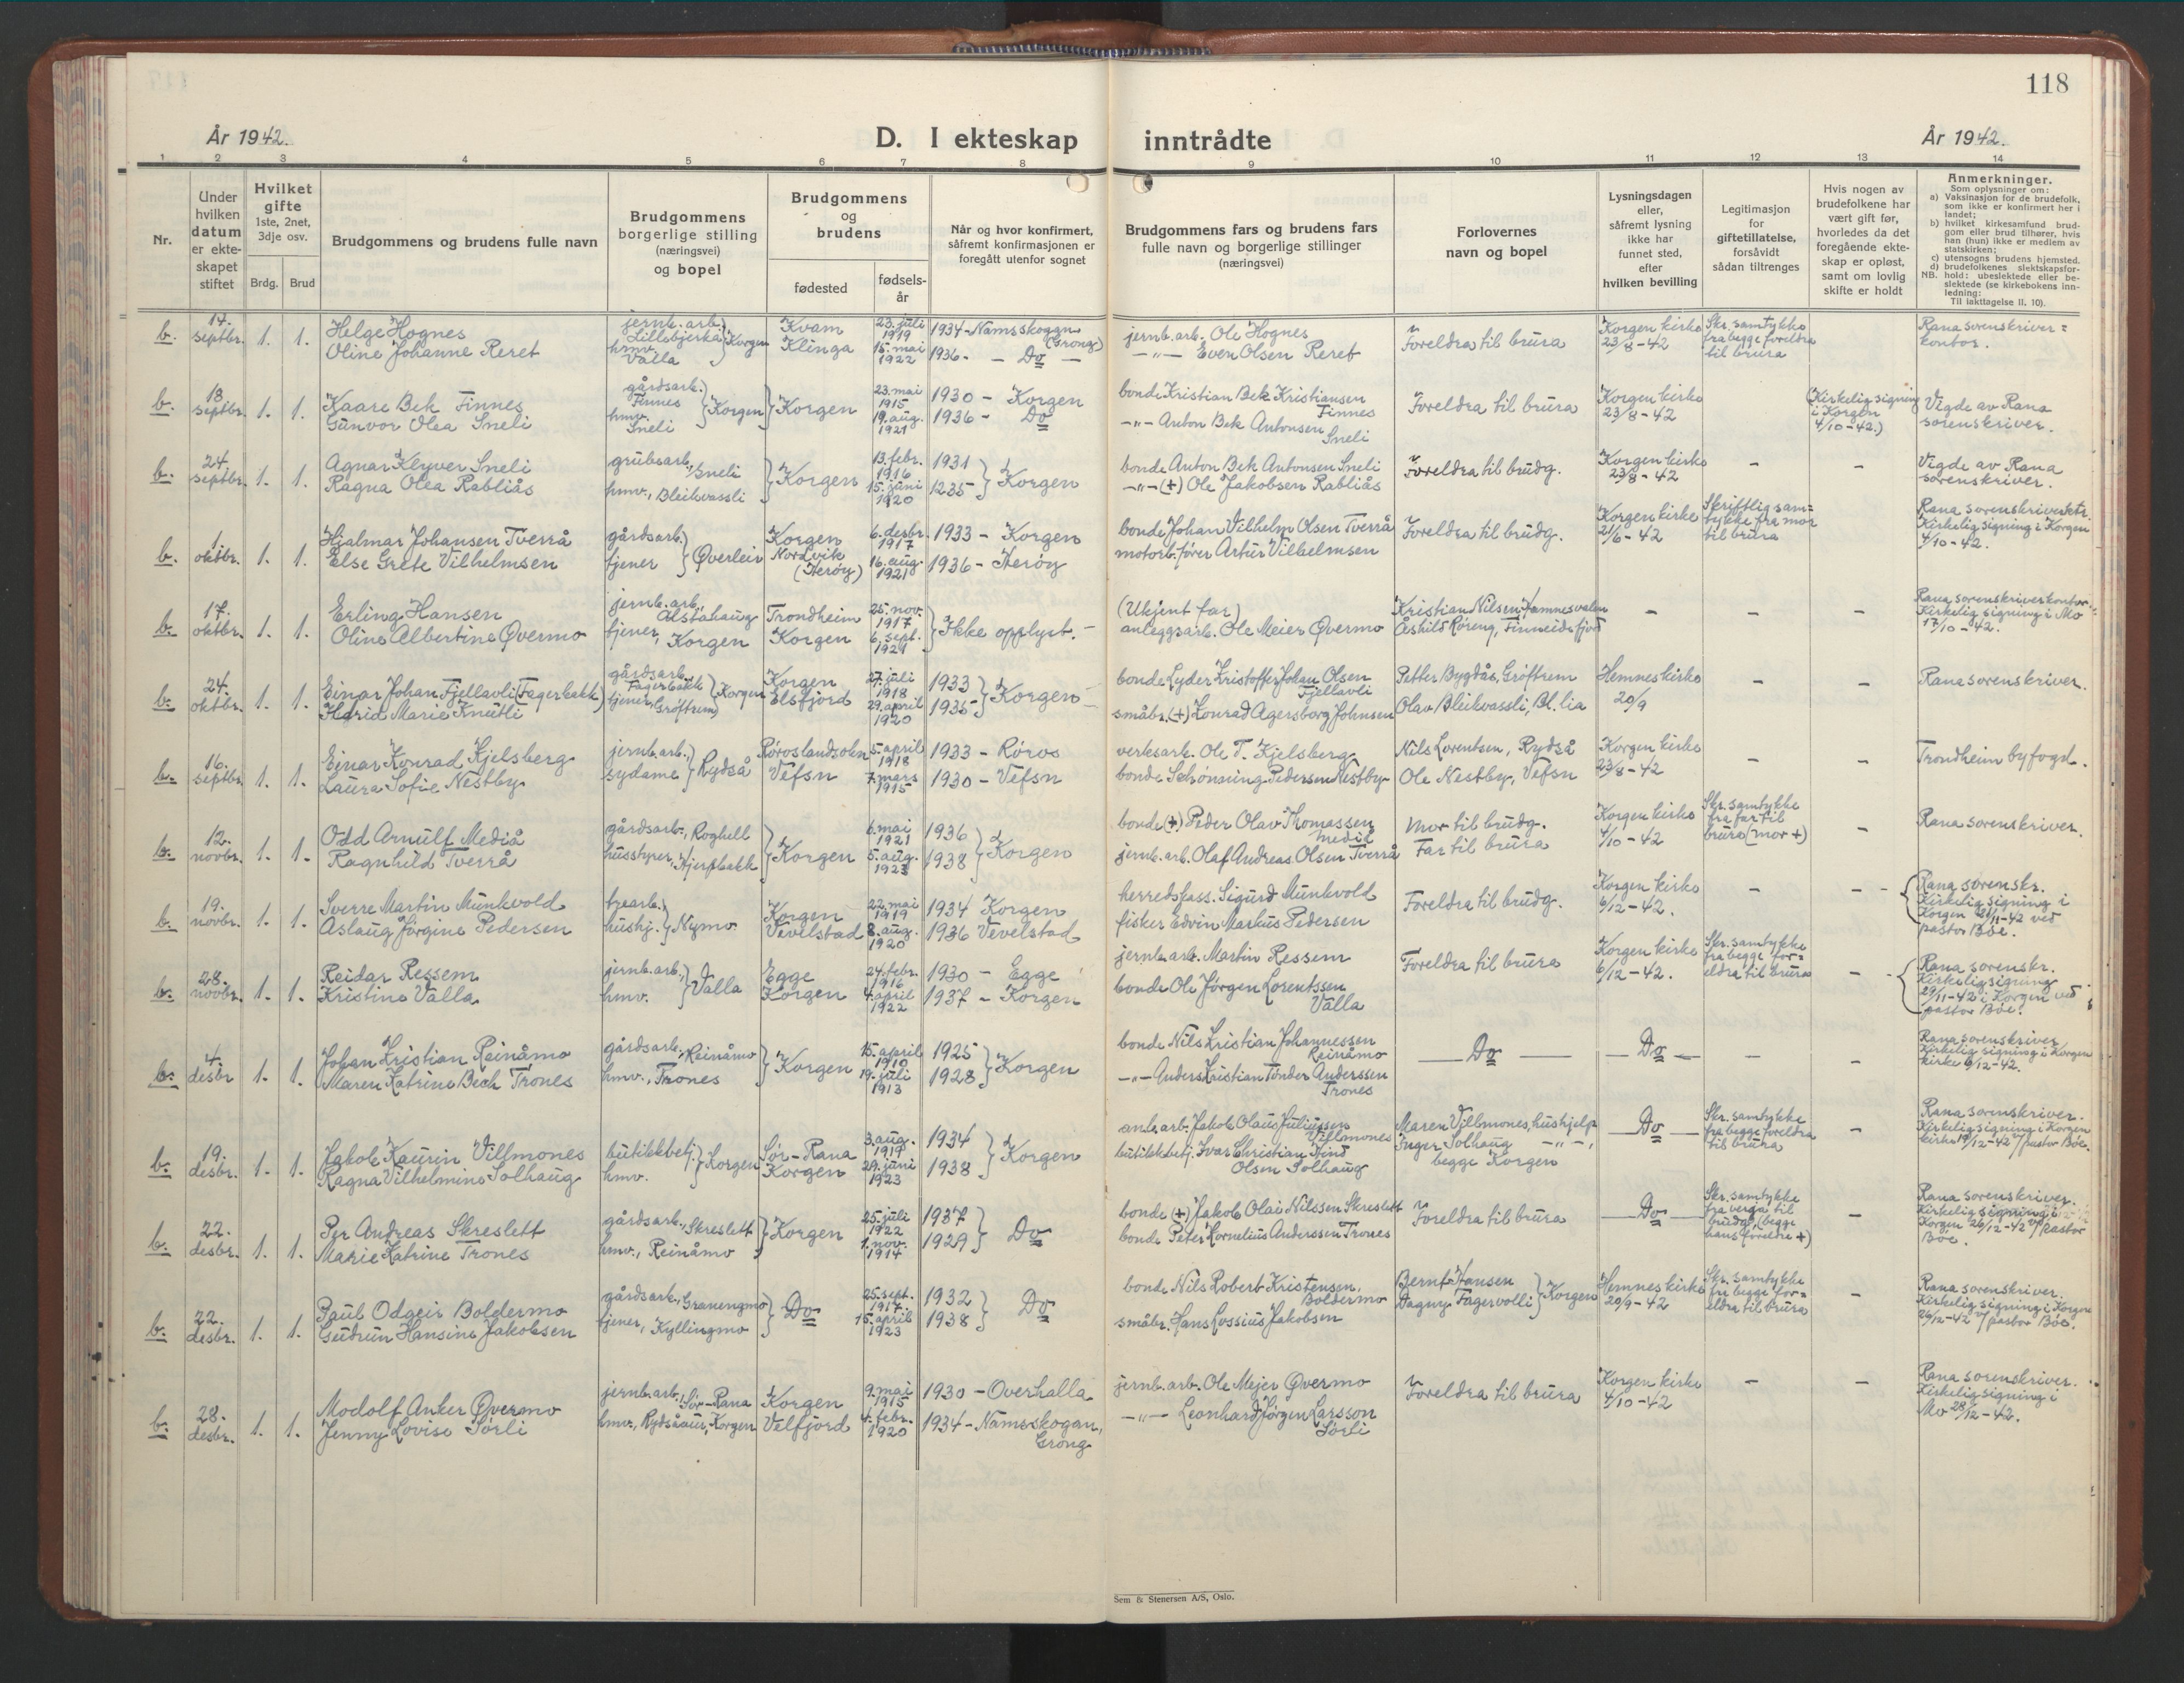 118
År 1942.
D. I ekteskap inntrådte
År 1942.
1 2 3 4 5 6 7 8 9 10 11 12 13 14
Nr.
Under hvilken datum er ekteskapet stiftet
Hvilket gifte 1ste, 2net, 3dje osv.
Brdg. Brud
Brudgommens og brudens fulle navn
Brudgommens borgerlige stilling (næringsvei) og bopel
Brudgommens og brudens
fødested
fødselsår
Når og hvor konfirmert, såfremt konfirmasjonen er foregått utenfor sognet
Brudgommens fars og brudens fars fulle navn og borgerlige stillinger (næringsvei)
Forlovernes navn og bopel
Lysningsdagen eller, såfremt lysning ikke har funnet sted, efter hvilken bevilling
Legitimasjon for giftetillatelse, forsåvidt sådan tiltrenges
Hvis nogen av brudefolkene har vært gift før, hvorledes da det foregående ekteskap er opløst, samt om lovlig skifte er holdt
Anmerkninger.
Som oplysninger om:
a) Vaksinasjon for de brudefolk, som ikke er konfirmert her i landet;
b) hvilket kirkesamfund brudgom eller brud tilhører, hvis han (hun) ikke er medlem av statskirken;
c) utensogns brudens hjemsted.
d) brudefolkenes slektskapsforhold: ubeslektede eller beslektede (se kirkebokens innledning:
NB. Til iakttagelse II. 10).
b. 14. septbr. 1. 1. Helge Hognes jernb.arb., Lillebjerka Kvam 23. juli 1919 1934 - Namsskogan (Grong) jernb. arb. Ole Hognes Foreldra til brura Korgen kirke 23/8-42 Skr. samtykke fra begge foreldra til brura Rana sorenskriverkontor.
Oline Johanne Reret hmv. Valla } Korgen Klinga 15. mai 1922 1936 - Do - -"- Even Olsen Reret
b. 18 septbr. 1. 1. Kaare Bek Finnes gårdsarb. Finnes } Korgen } Korgen 23. mai 1915 1930 - Korgen bonde Kristian Bek Kristiansen Finnes Foreldra til brura Korgen kirke 23/8-42 (Kirkelig signing i Korgen 4/10-42.) Vigde av Rana sorenskriver.
Gunvor Olea Sneli hmv. Sneli 19. aug. 1921 1936 - Do -"- Anton Bek Antonsen Sneli
b. 24. septbr. 1. 1. Agnar Klyver Sneli grubearb., Sneli } Korgen 13. febr. 1916 1931 } Korgen bonde Anton Bek Antonsen Sneli Foreldra til brudg. Korgen kirke 23/8-42 - - Vigde av Rana sorenskriver.
Ragna Olea Rabliås hmv., Bleikvassli 15. juni 1920 1235 -"- (+) Ole Jakobsen Rabliås
b. 1. oktbr. 1. 1. Hjalmar Johansen Tverrå gårdsarb. } Øverleir Korgen 6. desbr. 1917 1933 - Korgen bonde Johan Vilhelm Olsen Tverrå Foreldra til brudg. Korgen kirke 21/6-42 Skriftlig samtykke fra mor til brura Rana sorenskriverktr. Kirkelig signing i Korgen 4/10-42.
Else Grete Vilhelmsen tjener Nordvik (Herøy) 16. aug. 1921 1936 - Herøy motorb.fører Artur Vilhelmsen
b. 17. oktbr. 1. 1. Erling Hansen jernb.arb., Alstahaug Trondheim 25. nov. 1917 } Ikke opplyst. - (Ukjent far) Kristian Nilsen, Hamnesvalen - - - Rana sorenskriverkontor. Kirkelig signing i Mo 17/10-42.
Oline Albertine Øvermo tjener, Korgen Korgen 6. sept. 1921 anleggsarb. Ole Meier Øvermo Åshild Røreng, Finneidfjord
b. 24. oktbr. 1. 1. Einar Johan Fjellavli (Fagerbakk) gårdsarb. Fagerbakk } Korgen Korgen 27. juli 1918 1933 } Korgen - bonde Lyder Kristoffer Johan Olsen Fjellavli Petter Bygdås, Grøftrem Hemnes kirke 20/9 - - Rana sorenskriver.
Hedrid Marie Knutli tjener, Grøftrem Elsfjord 29. april 1920 1935 småbr. (+) Konrad Agersborg Johnsen Olav Bleikvassli, Bl. lia
b. 16. septbr. 1. 1. Einar Konrad Kjelsberg jernb.arb. } Rydså Røros landsokn 5. april 1918 1933 - Røros verksarb. Ole T. Kjelsberg Nils Lorentsen, Rydså Korgen kirke 23/8-42 - - Trondheim byfogd.
Laura Sofie Nestby sydame Vefsn 7. mars 1915 1930 - Vefsn bonde Schønning Pedersen Nestby Ole Nestby, Vefsn
b. 12. novbr. 1. 1. Odd Arnulf Mediå gårdsarb., Roghell } Korgen 6. mai 1921 1936 } Korgen bonde (+) Peder Olav Thomassen Mediå Mor til brudg. Korgen kirke 4/10-42 Skr. samtykke fra far til brura (mor +) - Rana sorenskriver.
Ragnhild Tverrå husstyrer, Hjerpbakk 5. aug. 1923 1938 jernb. arb. Olaf Andreas Olsen Tverrå Far til brura
b. 19. novbr. 1. 1. Sverre Martin Munkvold trearb. } Nymo Korgen 22. mai 1919 1934 Korgen herredskass. Sigurd Munkvold Foreldra til brudg. Korgen kirke 6/12-42. - - Rana sorenskr. Kirkelig signing i Korgen 21/11-42 ved pastor Bøe.
Aslaug Jørgine Pedersen hushj. Vevelstad 8. aug. 1920 1936 Vevelstad fisker Edvin Markus Pedersen
b. 28. novbr. 1. 1. Reidar Ressem jernb.arb., } Valla Egge 24. febr. 1916 1930 - Egge jernb. arb. Martin Ressem Foreldra til brura Korgen kirke 6/12-42. Skr. samtykke fra begge foreldra til brura - Rana sorenskr. Kirkelig signing 29/11-42 i Korgen ved pastor Bøe.
Kristine Valla hmv. Korgen 4. april 1922 1937 - Korgen bonde Ole Jørgen Lorentssen Valla
b. 4. desbr 1. 1. Johan Kristian Reinåmo gårdsarb., Reinåmo } Korgen 15. april 1910 1925 } Korgen bonde Nils Kristian Johannessen Reinåmo - Do - - Do - - - Rana sorenskriver Kirkelig signing i Korgen kirke 6/12-42.
Maren Katrine Bech Trones hmv., Trones 19. juli 1913 1928 -"- Anders Kristian Tønder Anderssen Trones
b. 19. desbr. 1. 1. Jakob Kaurin Villmones butikkbetj. } Korgen Sør-Rana 3. aug. 1919 1934 } Korgen anl. arb. Jakob Olaus Juliussen Villmones Maren Villmones, hushjelp - Do - Skr. samtykke fra begge foreldra til brura - Rana sorenskriver. Kirkelig signing i Korgen kirke 19/12-42 v/ pastor Bøe.
Ragna Vilhelmine Solhaug hmv. Korgen 29. juni 1923 1938 butikkbetj. Ivar Christian Hind Olsen Solhaug Inger Solhaug -"-, begge Korgen
b. 22. desbr. 1. 1. Per Andreas Skreslett gårdsarb., Skreslett } Korgen 25. juli 1922 1937 } Do bonde (+) Jakob Olai Nilssen Skreslett Foreldra til brura - Do - Skr. samtykke fra verge til brudg. (begge hans foreldre +) - Rana sorenskriver. Kirkelig signing i Korgen 26/12-42 v/ pastor Bøe.
Marie Katrine Trones hmv., Reinåmo 1. nov. 1914 1929 bonde Peter Kornelius Anderssen Trones
b. 22. desbr. 1. 1. Paul Odgeir Boldermo gårdsarb., Granengmo } Do 25. sept. 1917. 1932 } Do bonde Nils Robert Kristensen Boldermo Bernt Hansen } Korgen Hemnes kirke 20/9-42 Skr. samtykke fra begge foreldra til brura - Rana sorenskriver. Kirkelig signing i Korgen 26/12-42 v/ pastor Bøe.
Gudrun Hansine Jakobsen tjener, Kyllingmo 15. april 1923 1938 småbr. Hans Lossius Jakobsen Dagny Fagervolli
b. 28. desbr. 1. 1. Modolf Anker Øvermo jernb.arb., Sør-Rana Korgen 9. mai 1915 1930 - Overhalla jernb. arb. Ole Mejer Øvermo Foreldra til brura Korgen kirke 4/10-42 - - Rana sorenskriver. Kirkelig signing i Mo 28/12-42.
Jenny Lovise Sørli hmv., Rydsåaur, Korgen Velfjord 4. febr. 1920 1934 - Namsskogan, Grong -"- Leonhard Jørgen Larsson Sørli
Sem & Stenersen A/S, Oslo.